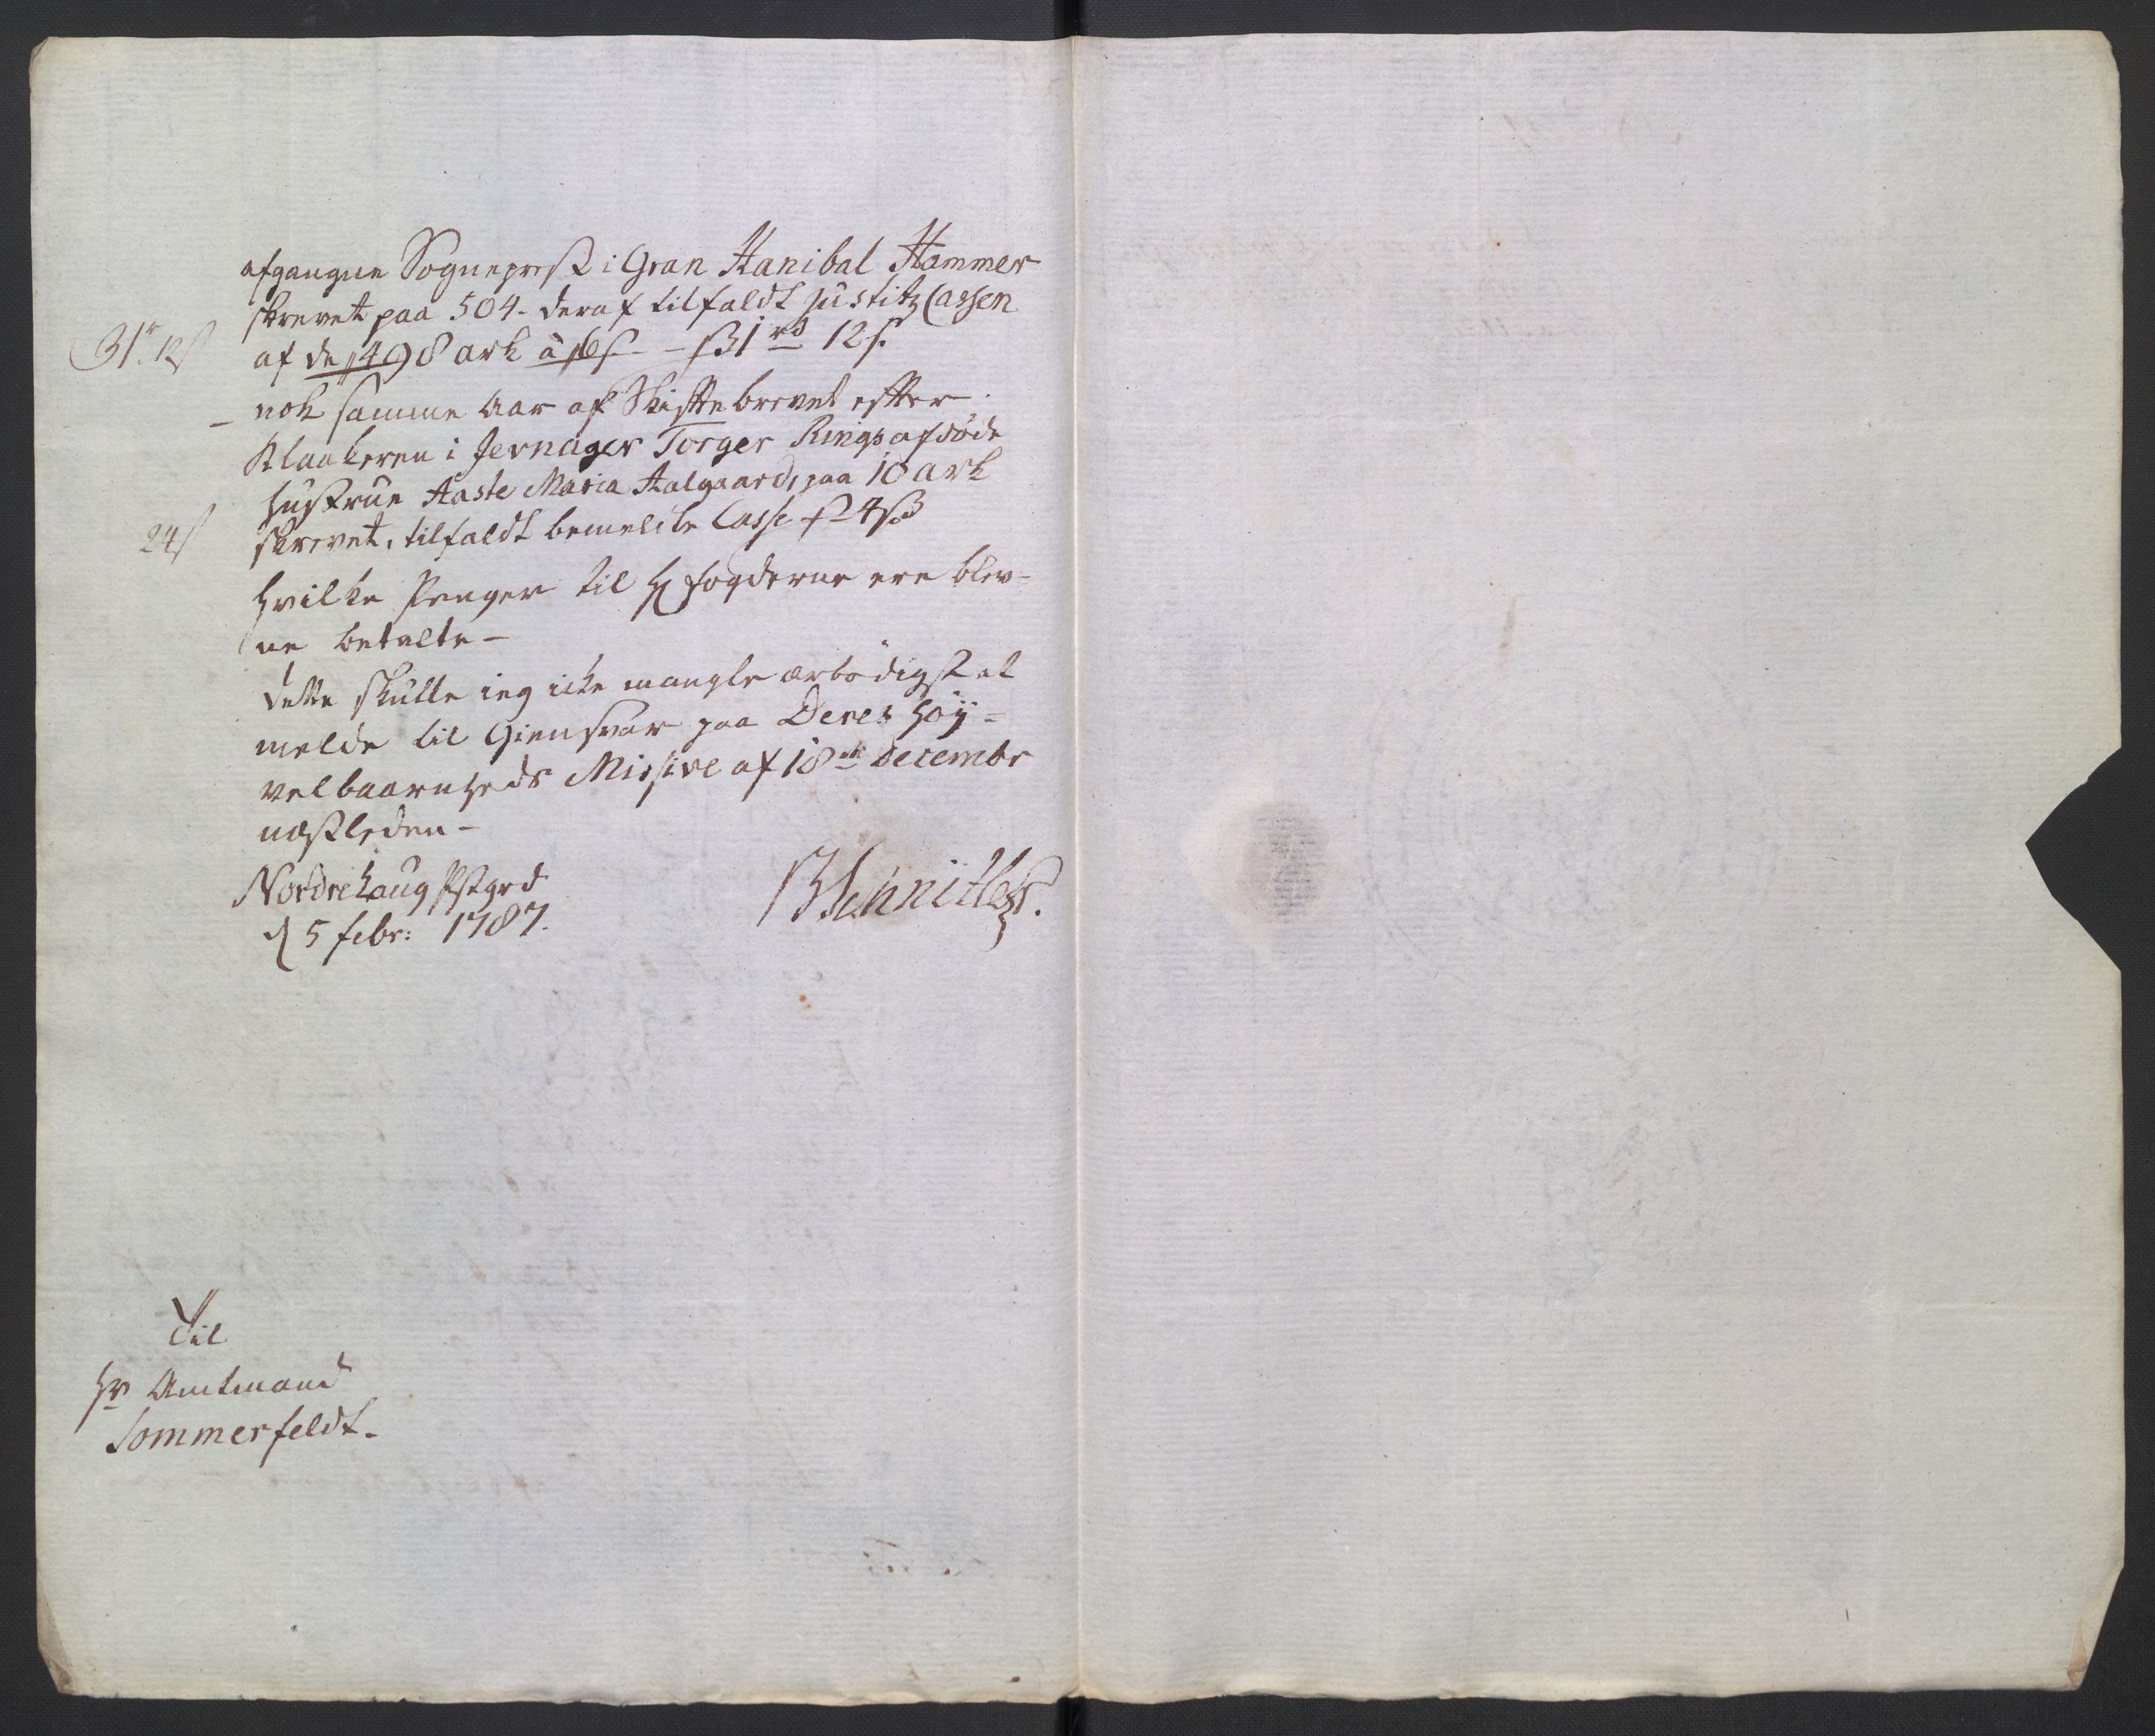 afgangne Sogneprest i Gran Hanibal Hammer
skrevet paa 504. deraf tilfaldt Justitz Cassen
31r. 12s
af de 498 ark à 6s - 31 rd 12 s.
nok samme Aar af Skiftebrevet efter
Klokkeren i Jevnager Torger Rings afdöde
Hustrue Aaste Maria Aalgaard, paa 10 ark
24s
skrevet, tilfaldt bemelte Casse
hvilke Penger til Hr Fogderne ere blev-
ne betalte -
dette skulle ieg icke mangle ærbödigst at
melde til Giensvar paa Deres Höy=
velbaarnheds Missive af 18de decembr
næstleden -
Nordrehaug Pstgrd
d 5 febr: 1787.
Schnitler.
Til
Hr Amtmand
Sommerfeldt.